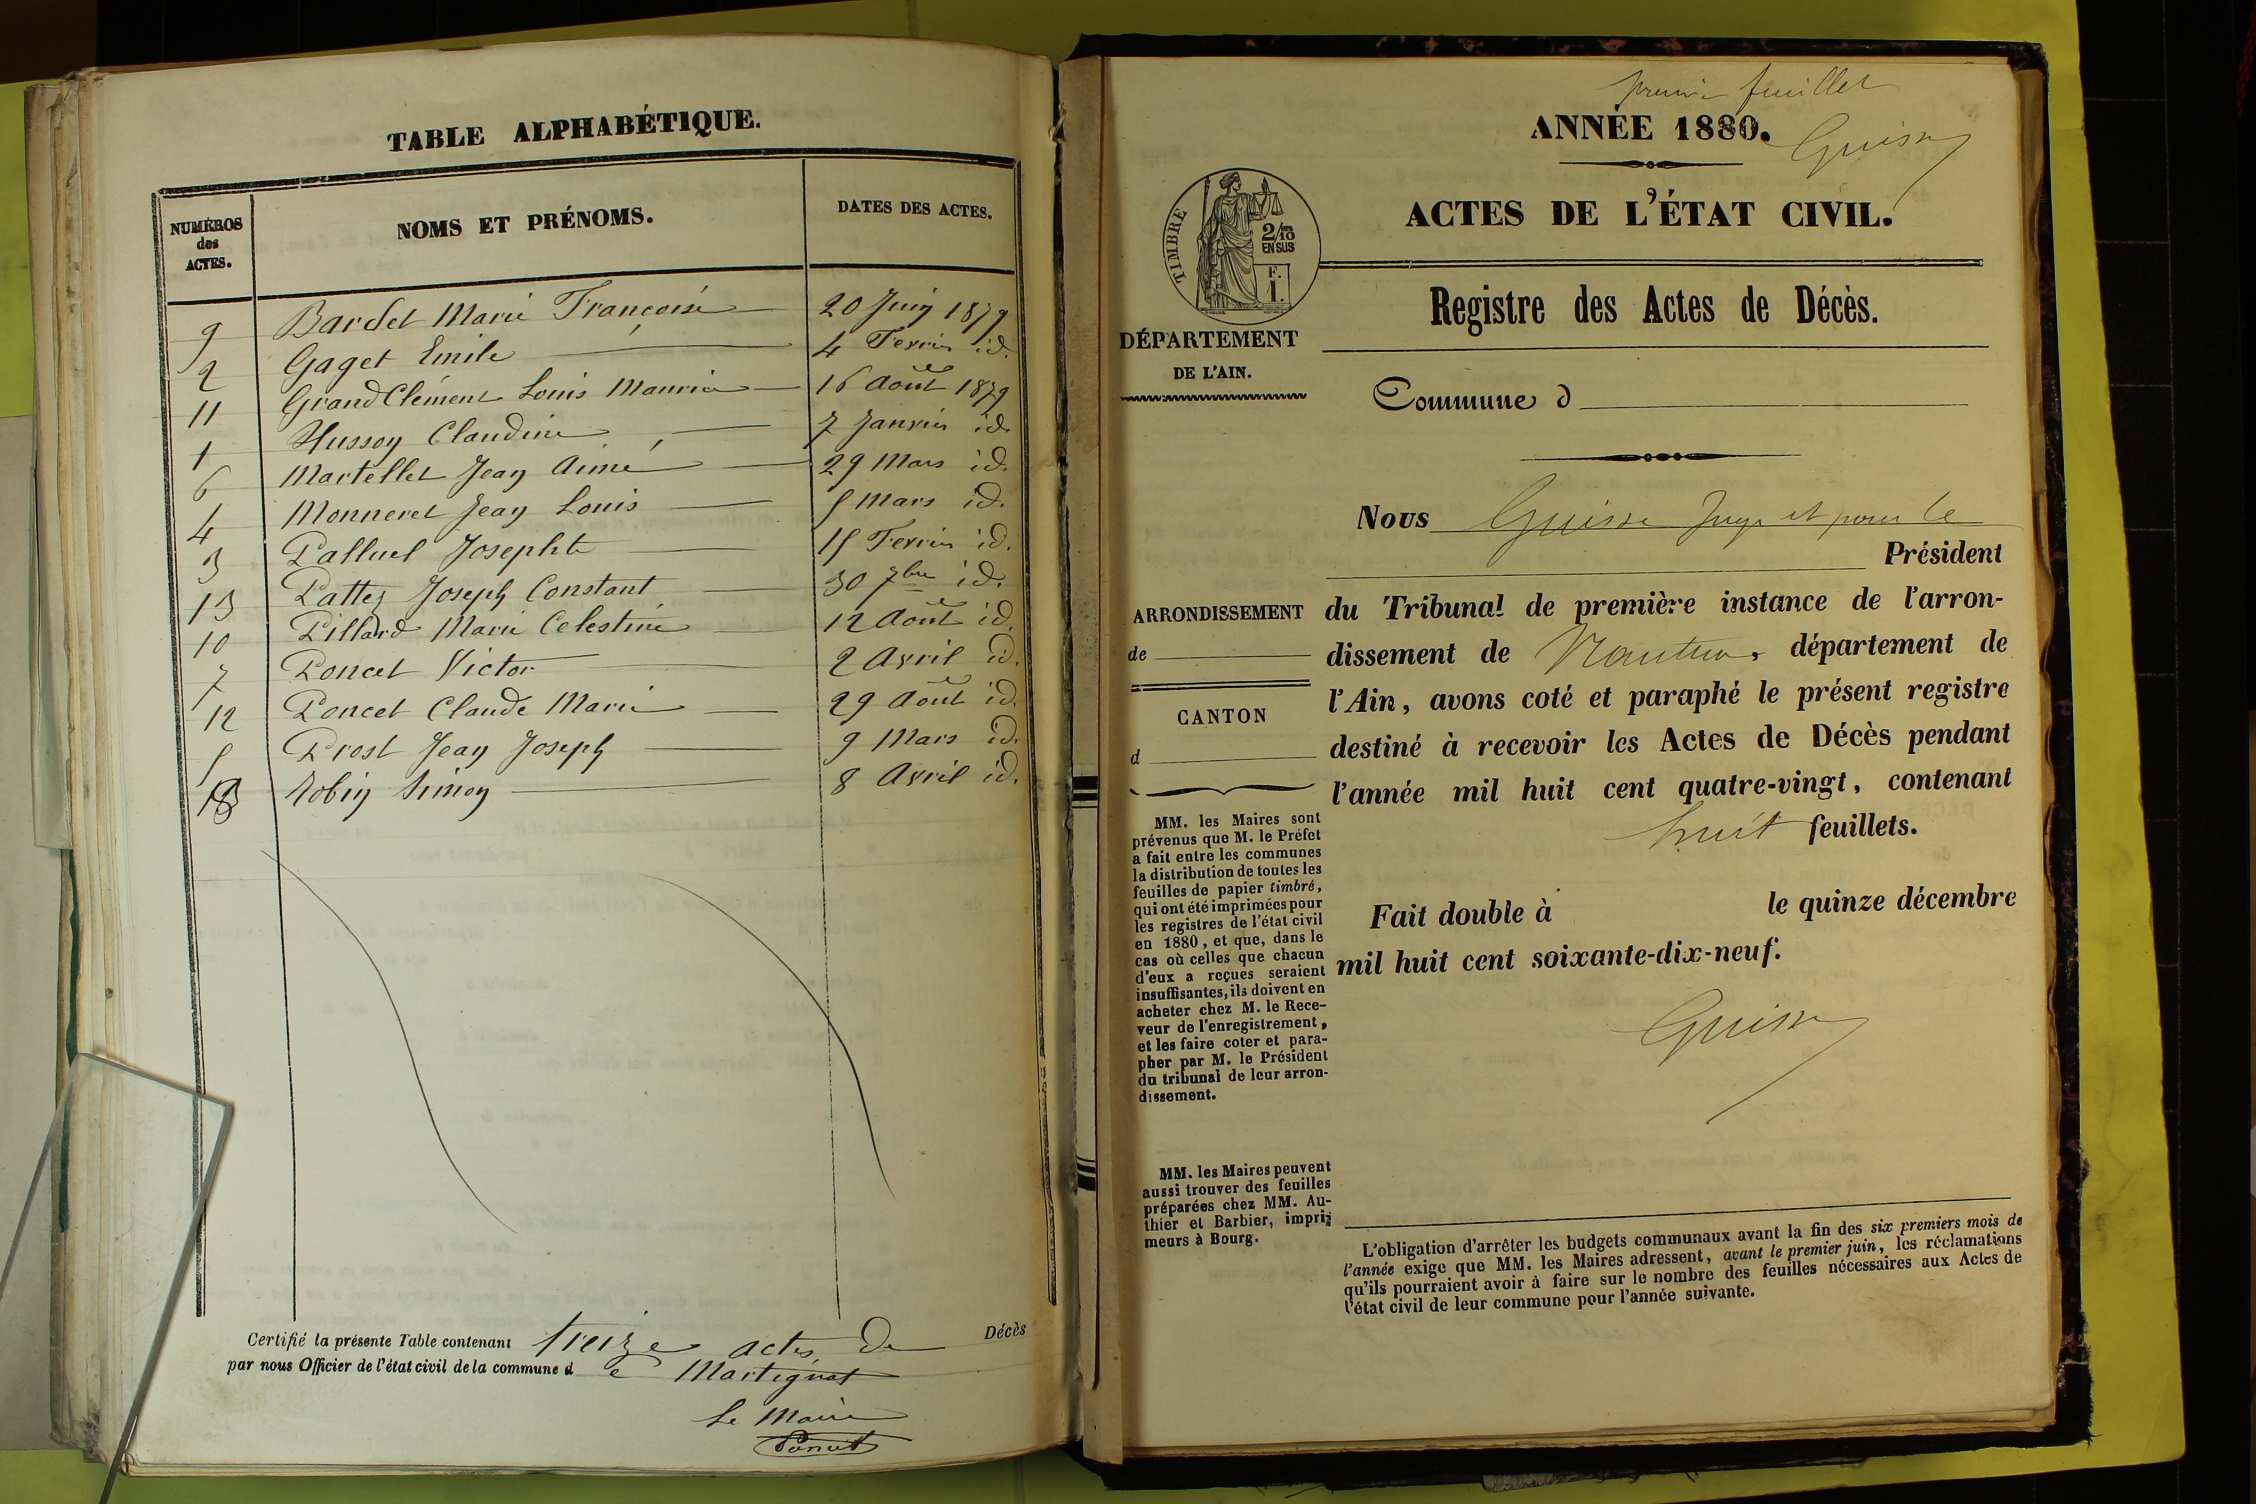 TABLE ALPHABÉTIQUE.
NUMÉROS des ACTES. NOMS ET PRÉNOMS. DATES DES ACTES.
9 Bardet Marie Françoise 20 Juin 1879
2 Gaget Emile 4 Fevrier id.
11 GrandClément Louis Maurice 16 Août 1879
1 Husson Claudine 7 Janvier id.
6 Martellet Jean Aimé 29 Mars id.
4 Monneret Jean Louis 5 Mars id.
3 Palluel Josephte 15 Fevrier id.
13 Joseph Constant 30 7bre id.
10 Pillard Marie Celestine 12 Août id.
7 Poncet Victor 2 Avril id.
12 Poncet Claude Marie 29 Août id.
5 Prost Jean Joseph 9 Mars id.
8 Robin Simon 8 Avril id.
Certifié la présente Table contenant treize actes de Décès
par nous Officier de l'état civil de la commune de Martignat
Le Maire
Poncet
premier feuillet
ANNÉE 1880.
ACTES DE L'ÉTAT CIVIL.
TIMBRE
2/10 EN SUS
F. 1.
Registre des Actes de Décès.
DÉPARTEMENT
DE L'AIN.
Commune d
Nous Juge et pour le
Président
ARRONDISSEMENT
de
CANTON
d
du Tribunal de première instance de l'arron-
dissement de Nantua, département de
l'Ain, avons coté et paraphé le présent registre
destiné à recevoir les Actes de Décès pendant
l'année mil huit cent quatre-vingt, contenant
huit feuillets.
Fait double à le quinze décembre
mil huit cent soixante-dix-neuf.
MM. les Maires sont
prévenus que M. le Préfet
a fait entre les communes
la distribution de toutes les
feuilles de papier timbré,
qui ont été imprimées pour
les registres de l'état civil
en 1880, et que, dans le
cas où celles que chacun
d'eux a reçues seraient
insuffisantes, ils doivent en
acheter chez M. le Rece-
veur de l'enregistrement,
et les faire coter et para-
pher par M. le Président
du tribunal de leur arron-
dissement.
MM. les Maires peuvent
aussi trouver des feuilles
préparées chez MM. Au-
thier et Barbier, impri-
meurs à Bourg.
L'obligation d'arrêter les budgets communaux avant la fin des six premiers mois de
l'année exige que MM. les Maires adressent, avant le premier juin, les réclamations
qu'ils pourraient avoir à faire sur le nombre des feuilles nécessaires aux Actes de
l'état civil de leur commune pour l'année suivante.